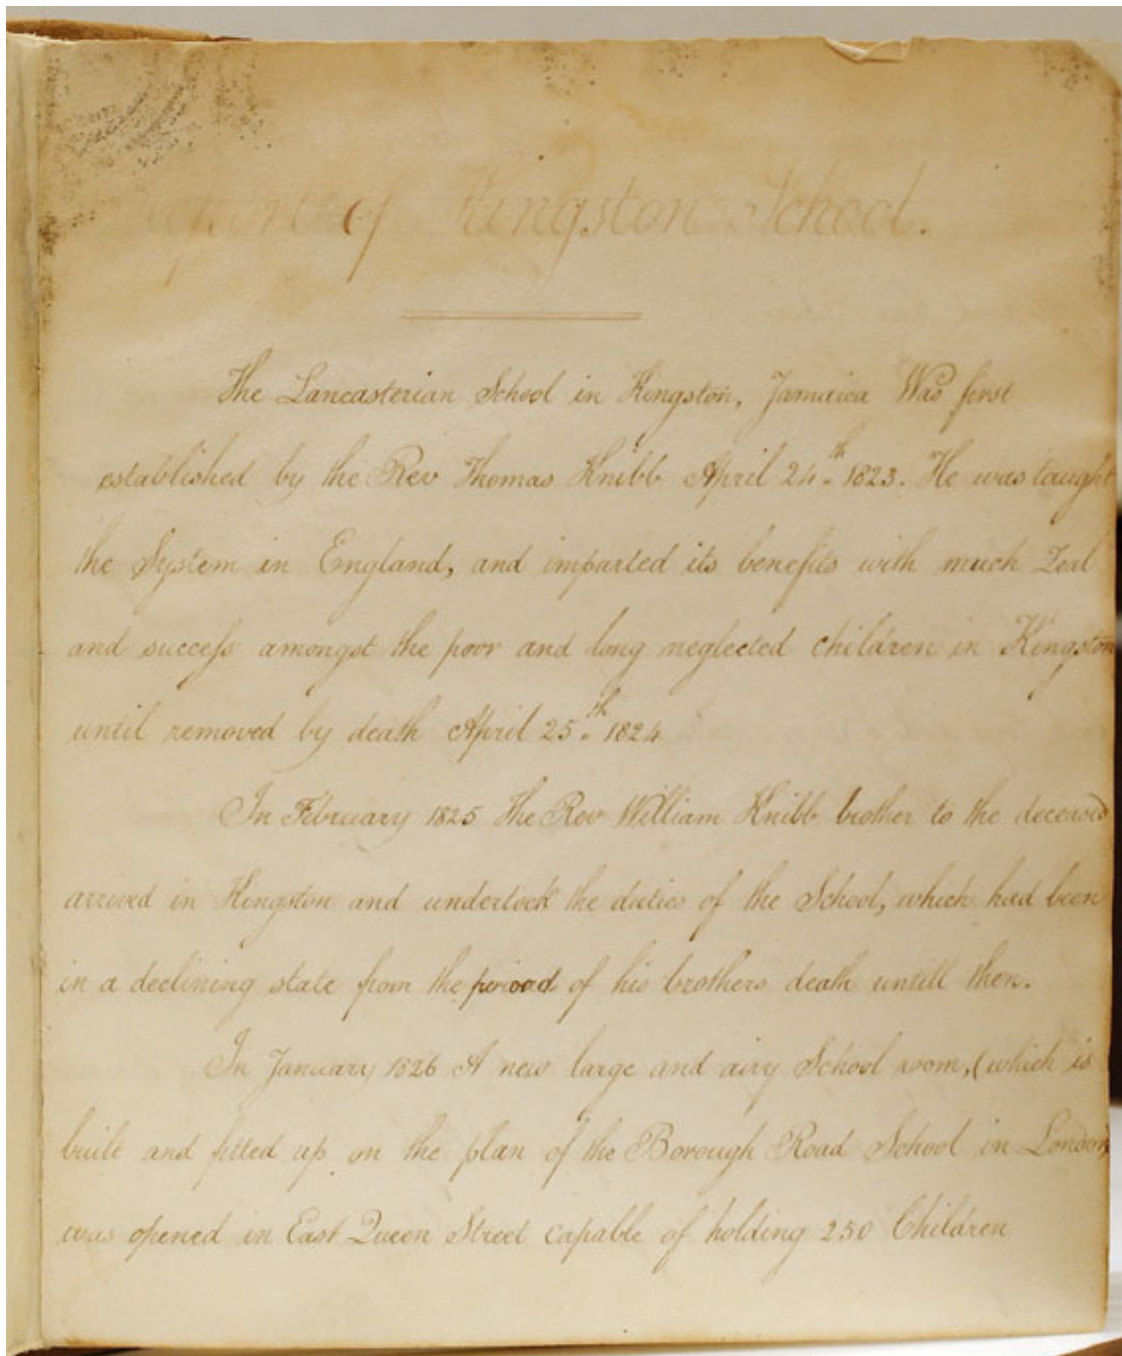 Report of Kingston School.
The Lancasterian School in Kingston, Jamaica Was first
established by the Rev Thomas Knibb April 24th 1823. He was taught
the System in England, and imparted its benefits with much Zeal
and success amongst the poor and long neglected children in Kingston
until removed by death April 25th 1824
In February 1825 The Rev William Knibb brother to the deceased
arrived in Kingston and undertook the duties of the School, which had been
in a declining state from the period of his brothers death untill then.
In January 1826 A new large and airy School room, (which is
built and fitted up on the plan of the Borough Road School in London)
was opened in East Queen Street capable of holding 250 Children